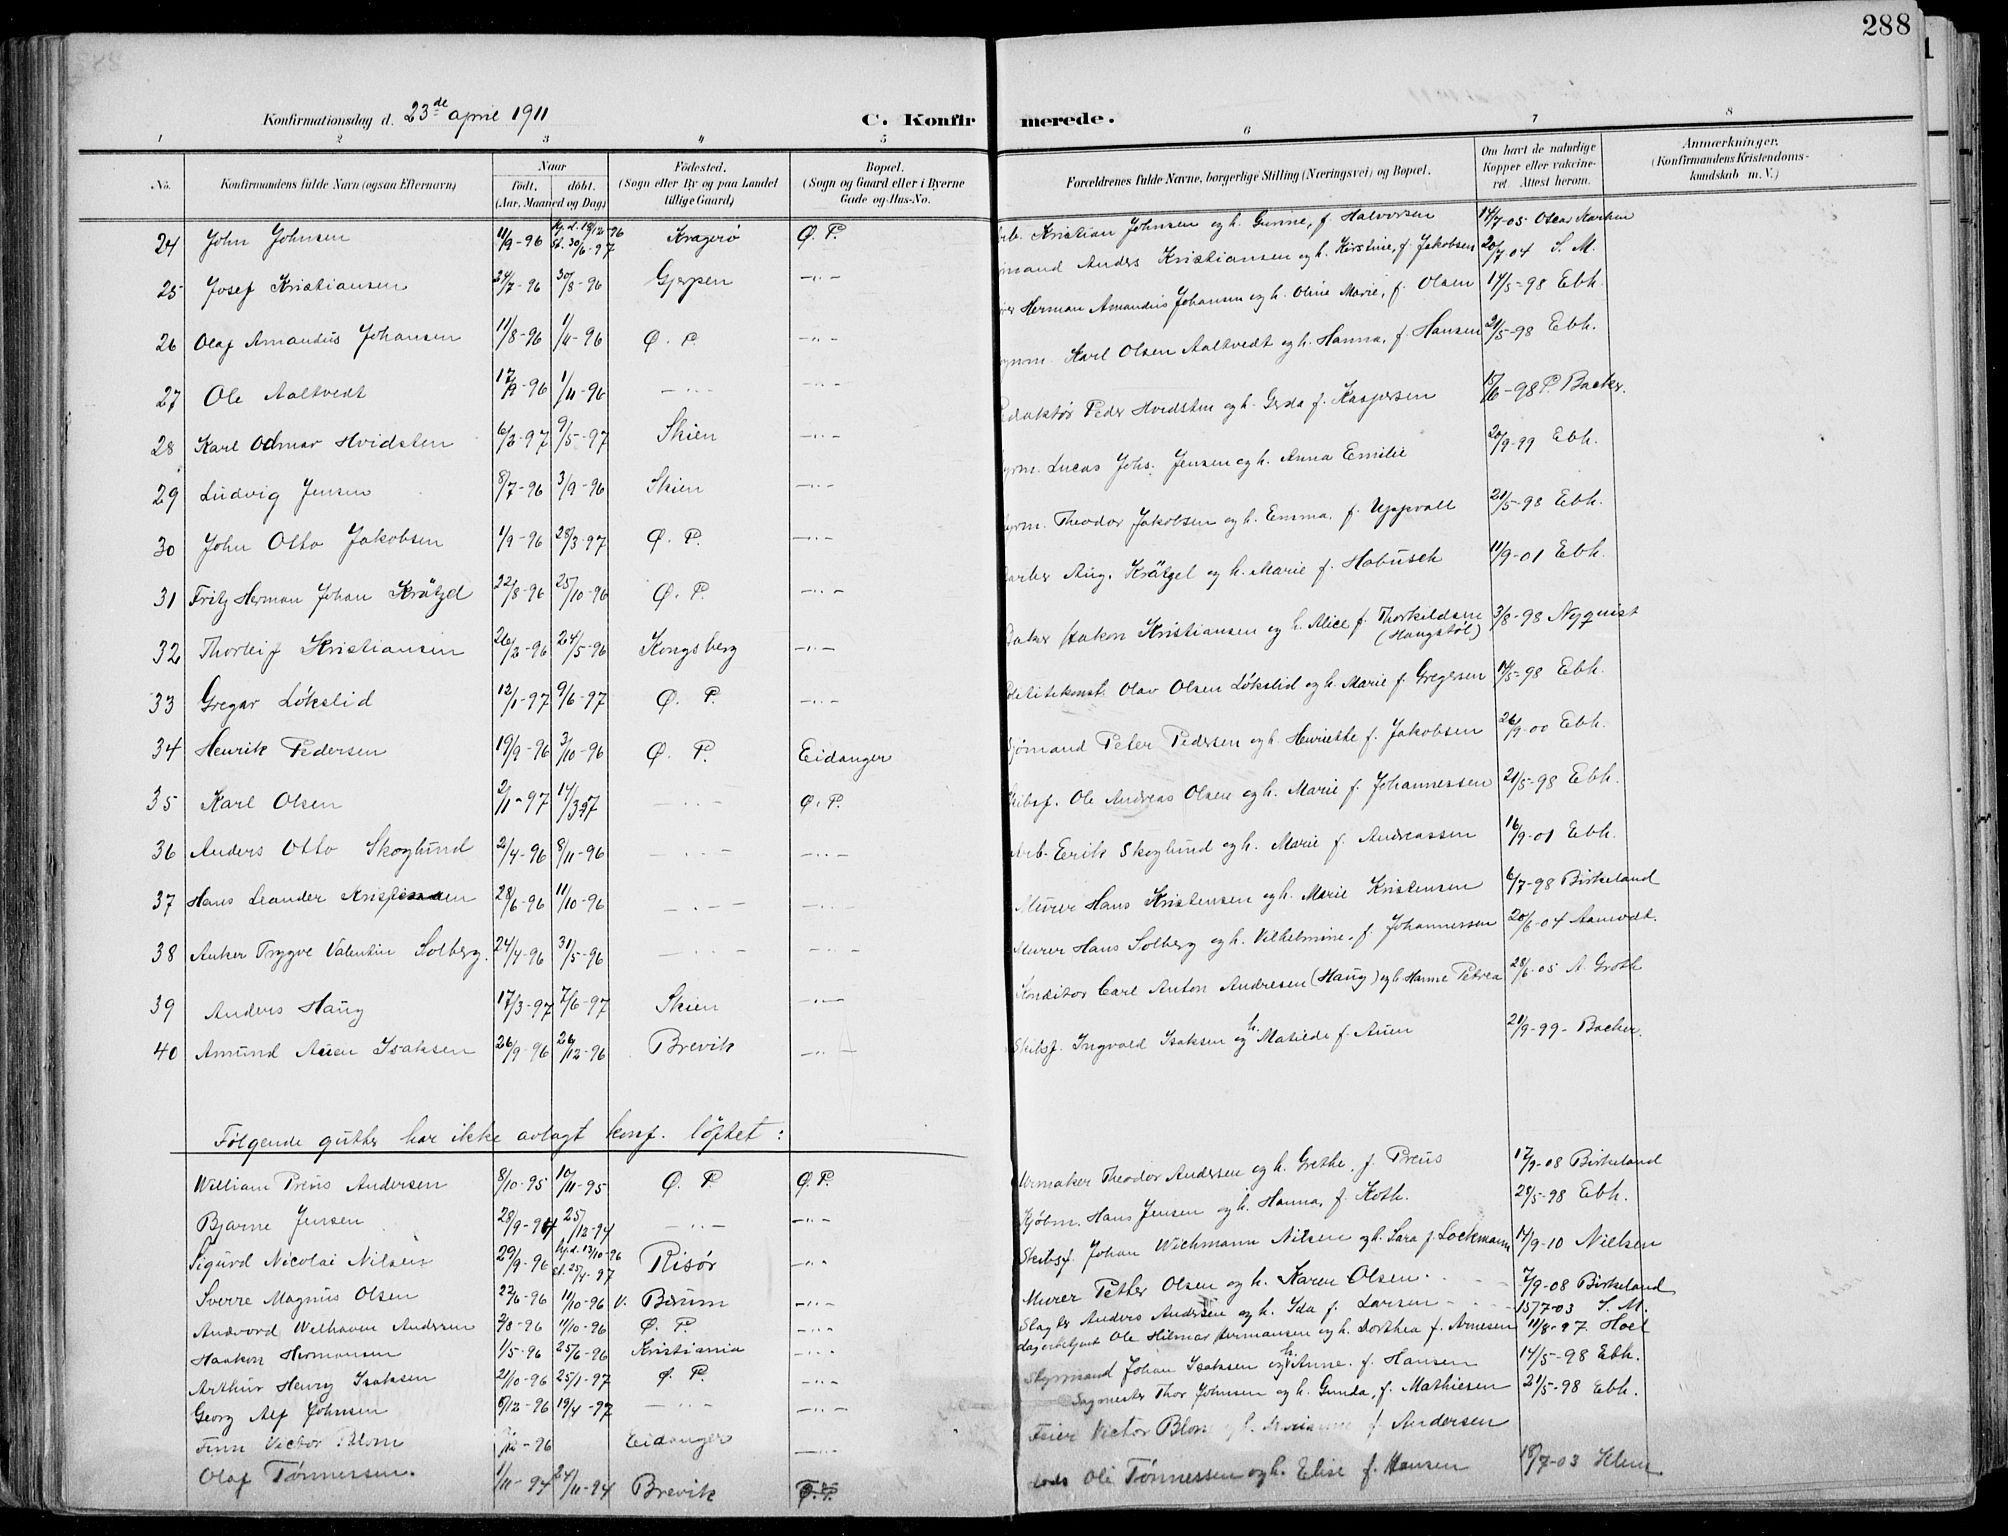 288
Konfirmationsdag d. 23de april 1911
C. Konfirmerede.
1 2 3 4 5 6 7 8
No.
Konfirmandens fulde Navn (ogsaa Efternavn)
Naar
født. døbt.
(Aar, Maaned og Dag)
Fødested.
(Sogn eller By og paa Landet tillige Gaard)
Bopæl.
(Sogn og Gaard eller i Byerne Gade og Hus-No.
Forældrenes fulde Navne, borgerlige Stilling (Næringsvei) og Bopæl.
Om havt de naturlige Kopper eller vakcineret. Attest herom.
Anmærkninger.
(Konfirmandens Kristendomskundskab m. V.)
24 John Johnsen 11/9-96 Hj.d. 19/12-96 St. 30/6-97 Kragerø Ø. P. Kristian Johnsen og h. Gunne, f. Halvorsen 14/7-05 Oscar
25 Josef Kristiansen 24/7-96 30/8-96 Gjerpen -"- Anders Kristiansen og h. Kirstine, f. Jakobsen 20/7 04 S. M.
26 Olaf Amandus Johansen 11/8-96 1/4-96 Ø. P. -"- Herman Amandus Johansen og h. Oline Marie, f. Olsen 14/5-98 Ebh.
27 Ole Aaltvedt 17/9-96 1/11-96 -"- -"- Karl Olsen Aaltvedt og h. Hanna, f. Hansen 21/5-98 Ebh.
28 Karl Odmar Hvidsten 6/2-97 9/5-97 Skien -"- Peder Hvidsten og h. Gerda f. Kaspersen 15/6-98 P. Backer.
29 Ludvig Jensen 8/7-96 3/9-96 Skien -"- Lucas Johs. Jensen og h. Anna Emilie 20/9-99 Ebh.
30 John Otto Jakobsen 1/9-96 28/3-97 Ø. P. -"- Theodor Jakobsen og h. Emma, f. Uppvall 21/5-98 Ebh.
31 Fritz Herman Johan Krätzel 22/8-96 25/10-96 Ø. P. -"- Aug. Krätzel og h. Marie f. Habusch 11/9-01 Ebh.
32 Thorleif Kristiansen 26/2-96 24/5-96 Kongsberg -"- Hakon Kristiansen og h. Alice f. Thorkildsen (Haugstøl) 3/8-98 Nyquist
33 Gregar Løkslid 12/1-97 9/6-97 Ø. P. -"- Olav Olsen Løkslid og h. Marie f. Gregersen 14/5-98 Ebh.
34 Henrik Pedersen 19/9-96 3/10-96 Ø. P. Eidanger Peter Pedersen og h. Henriette f. Jakobsen 26/9-00 Ebh.
35 Karl Olsen 2/1-97 14/3-97 -"- Ø. P. Ole Andreas Olsen og h. Marie f. Johannessen 21/5-98 Ebh.
36 Anders Otto Skoglund 2/4-96 8/11-96 -"- -"- Arb. Erik Skoglund og h. Marie f. Andreassen 16/9-01 Ebh.
37 Hans Leander 28/6-96 11/10-96 -"- -"- Murer Hans Kristensen og h. Marie Kristensen 6/7-98 Birkeland
38 Anker Trygve Valentin Solberg. 24/4-96 31/5-96 -"- -"- Murer Hans Solberg og h. Vilhelmine, f. Johannessen 20/6-04 Aamodt.
39 Anders Haug 17/3-97 7/6-97 Skien -"- Konditor Carl Anton Andresen (Haug) og h. Hanne Petrea 28/6-05 A. Groth
40 Amund Auen Isaksen 26/9-96 26/12-96 Brevik -"- Skibsf. Ingvald Isaksen og h. Matilde f. Auen 21/9-99- Backer.
Følgende gutter har ikke avlagt konf. løftet:
William Preus Andersen 8/10-95 10/11-95 Ø. P. Ø. P. Urmaker Theodor Andersen og h. Grethe, f. Preus 17/9-08 Birkeland
Bjarne Jensen 28/9-94 25/12-94 -"- -"- Kjøbm. Hans Jensen og h. Hanna, f. Koth. 28/5-98 Ebh.
Sigurd Nicolai Nilsen 29/9-96 Hj.d. 13/10-96 St. 25/4-97 Risør -"- Skibsf. Johan Wichmann Nilsen og h. Lara f. Lockmann 14/9-10 Nielsen
Sverre Magnus Olsen 22/6-96 11/10-96 V. Bærum -"- Murer Pether Olsen og h. Karen Olsen. 7/9-08 Birkeland
Andvord Welhaven Andersen 2/8-96 11/10-96 Ø. P. -"- Slagter Anders Andersen og h. Ida f. Larsen 15/7-03 S. M.
Haakon Hermansen 1/5-96 25/6-96 Kristiania -"- Ole Hilmar Hermansen og h. Dorthea f. Arnesen 11/8-97 Hoel
Arthur Henry Isaksen 21/10-96 25/1-97 Ø. P. -"- Styrmand Johan Isaksen og h. Anne. f. Hansen 14/5-98 Ebh.
Georg Alf Johnsen 6/12-96 19/4-97 -"- -"- Sagmester Thor Johnsen og h. Gunda, f. Mathiesen 21/5-98 Ebh.
Finn Victor Blom /12-96 Eidanger -"- Feier Victor Blom og h. f. Andersen
Olaf Tønnessen. 1/11-94 24/11-94 Brevik Lods Ole Tønnessen og h. Elise f. Hansen 18/7-03